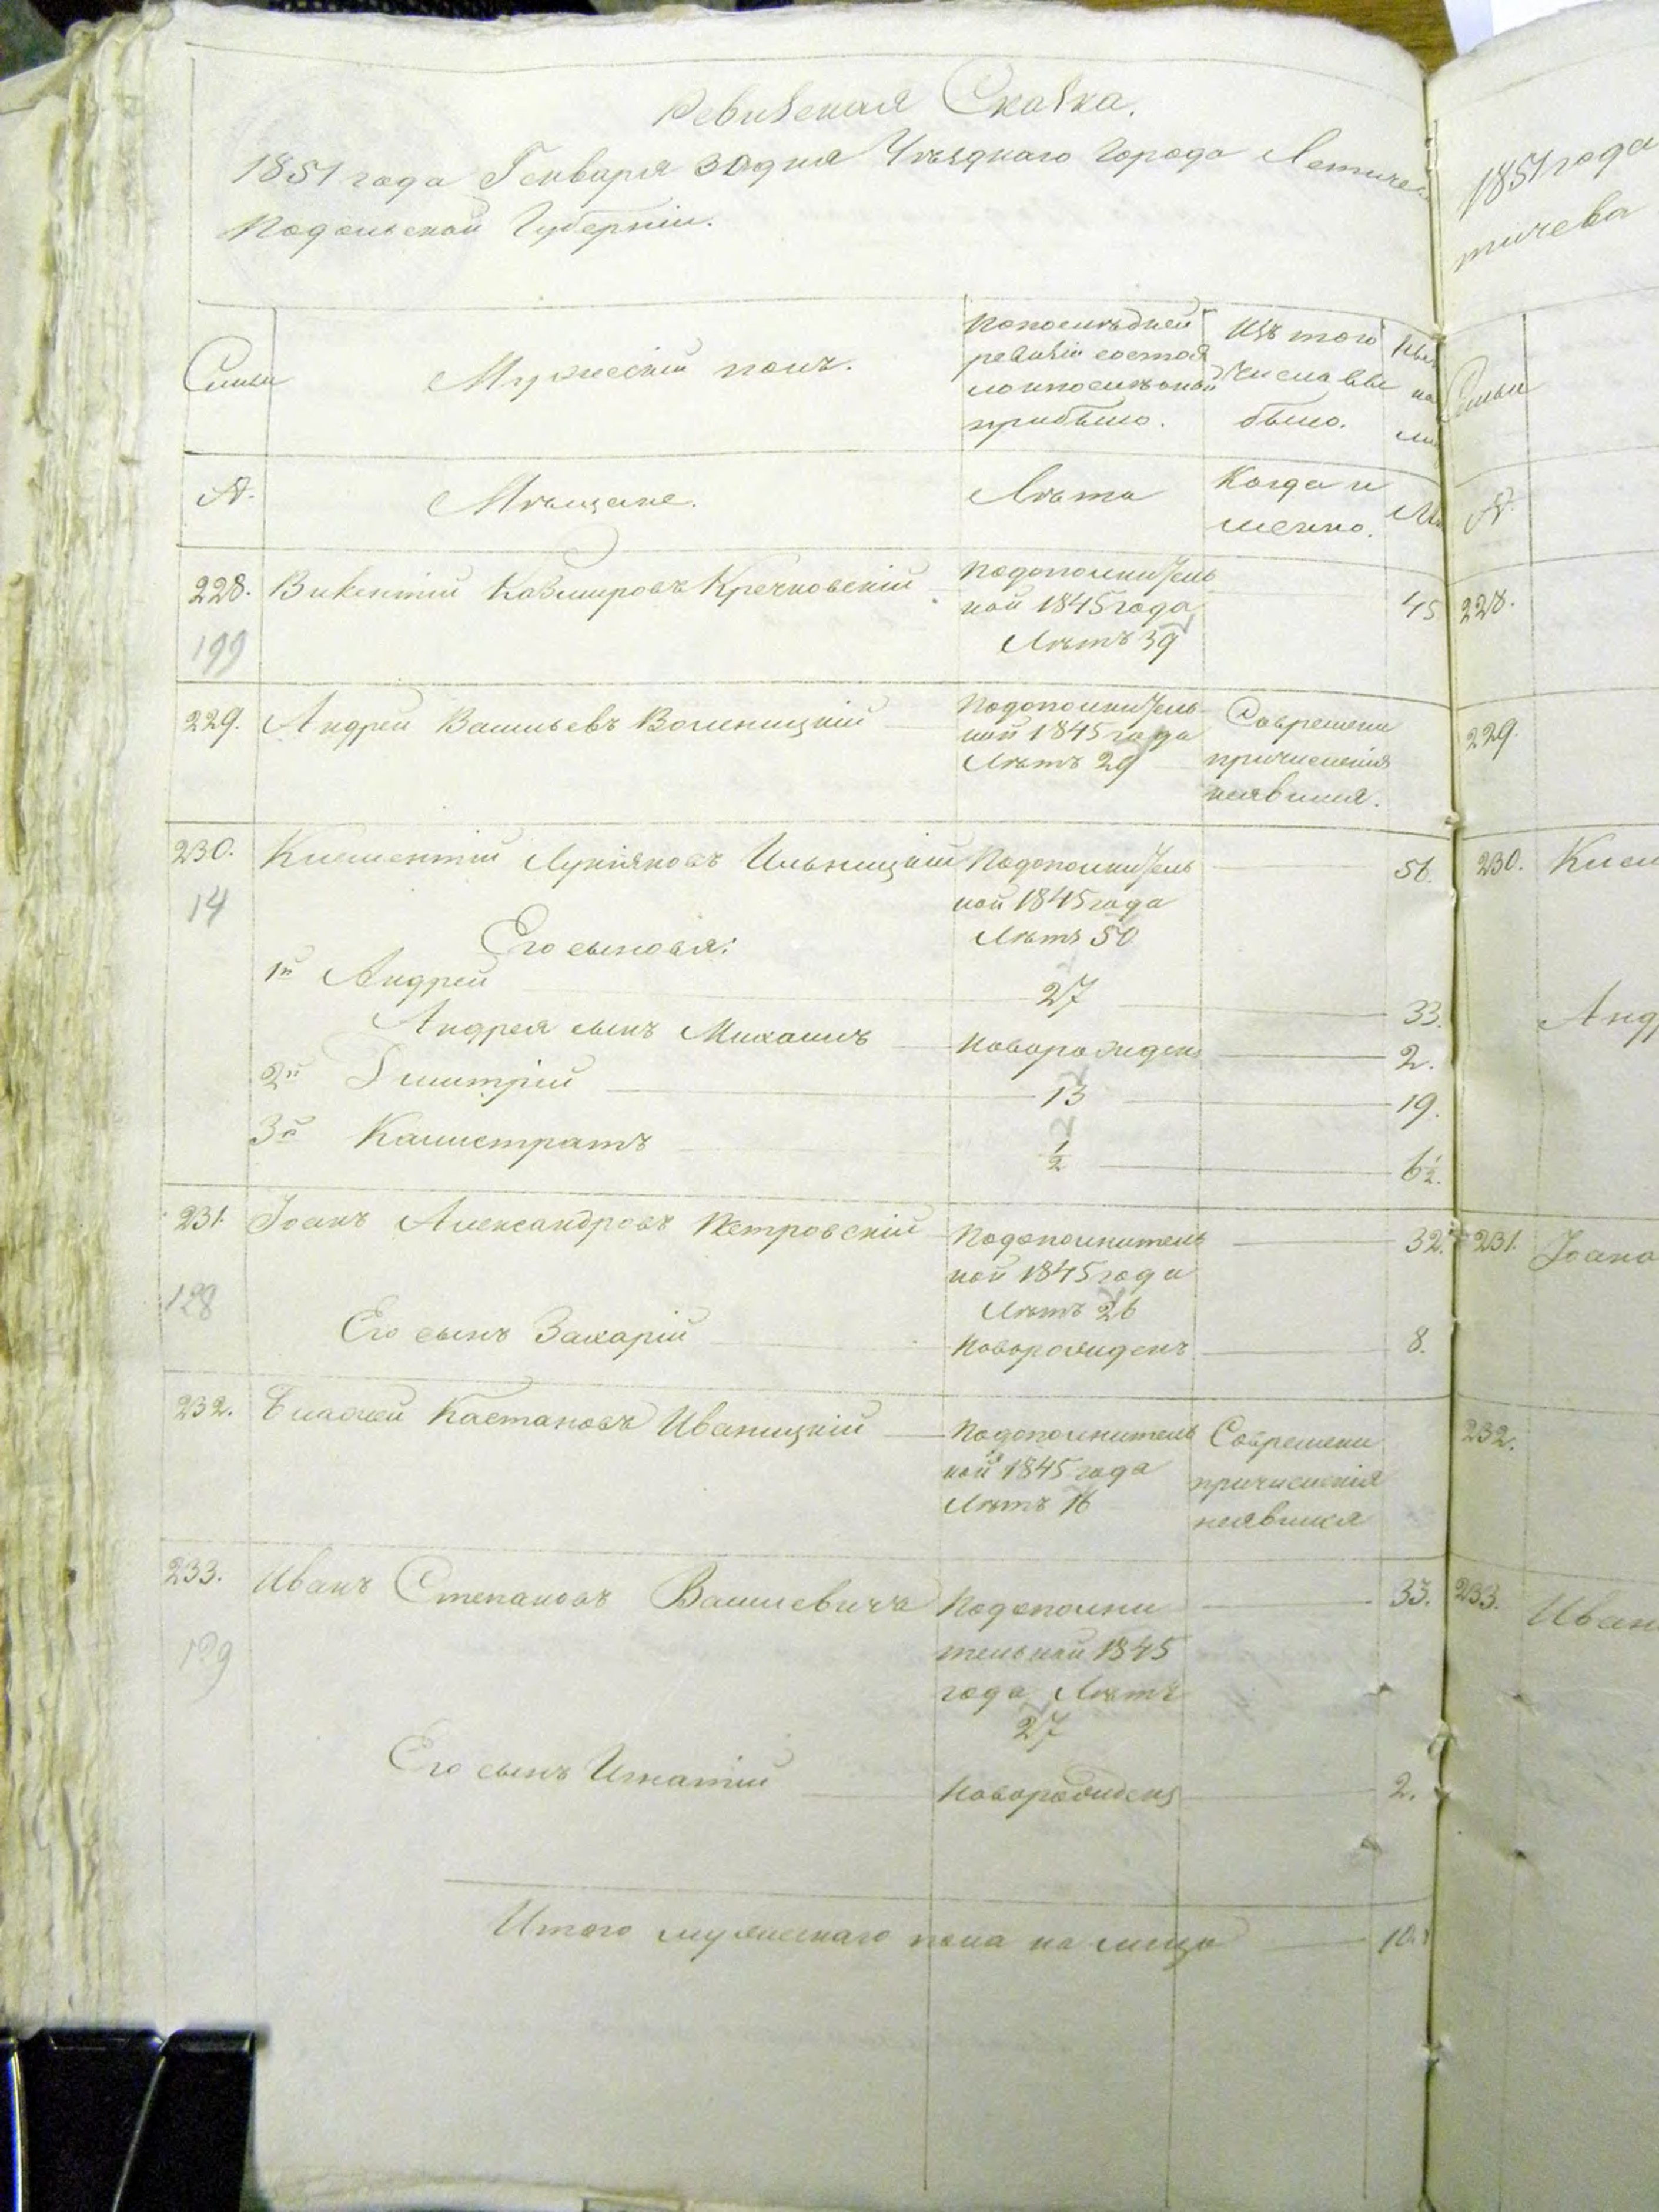 Ревизская Сказка.
1851 года Генваря 30 дня Уѣзднаго Города Летиче
Подольской Губерніи.
Семьи
Мужескій полъ.
По последней
ревизіи состоя
ло и после оной
прибыло.
Изъ того
числа вы
было.
№.
Мѣщане.
Лѣта
Когда и
менно.
228. Викентій Казимировъ Кречковскій
По дополнитель
ной 1845 года
Лѣтъ 39
45
199
229. Андрей Васильевъ Воленицкій
По дополнитель
ной 1845 года
Лѣтъ 29
Со времени
причисленія
неявился.
230. Климентій Лукіяновъ Ильницкій
По дополнитель
ной 1845 года
Лѣтъ 50
56.
14
Его сыновья:
1й Андрей 27 33.
Андрея сынъ Михаилъ новорожден 2.
2й Дмитрій 13 19.
3й Калистратъ ½ 6½.
231. Іоанъ Александровъ Петровскій
По дополнитель
ной 1845 года
Лѣтъ 26
32.
128
Его сынъ Захарій новорожденъ 8.
232. Каетановъ Иваницкій
По дополнитель
ной 1845 года
Лѣтъ 16
Со времени
причисленія
неявился
233. Иванъ Степановъ Василевичъ
По дополни
тельной 1845
года Лѣтъ
27
33.
129
Его сынъ Игнатій новорожденъ 2.
Итого мужескаго пола на лицо
1851 года
тичева
Семьи
№.
228.
229.
230. Клим
Анд
231. Іоана
232.
233. Иван